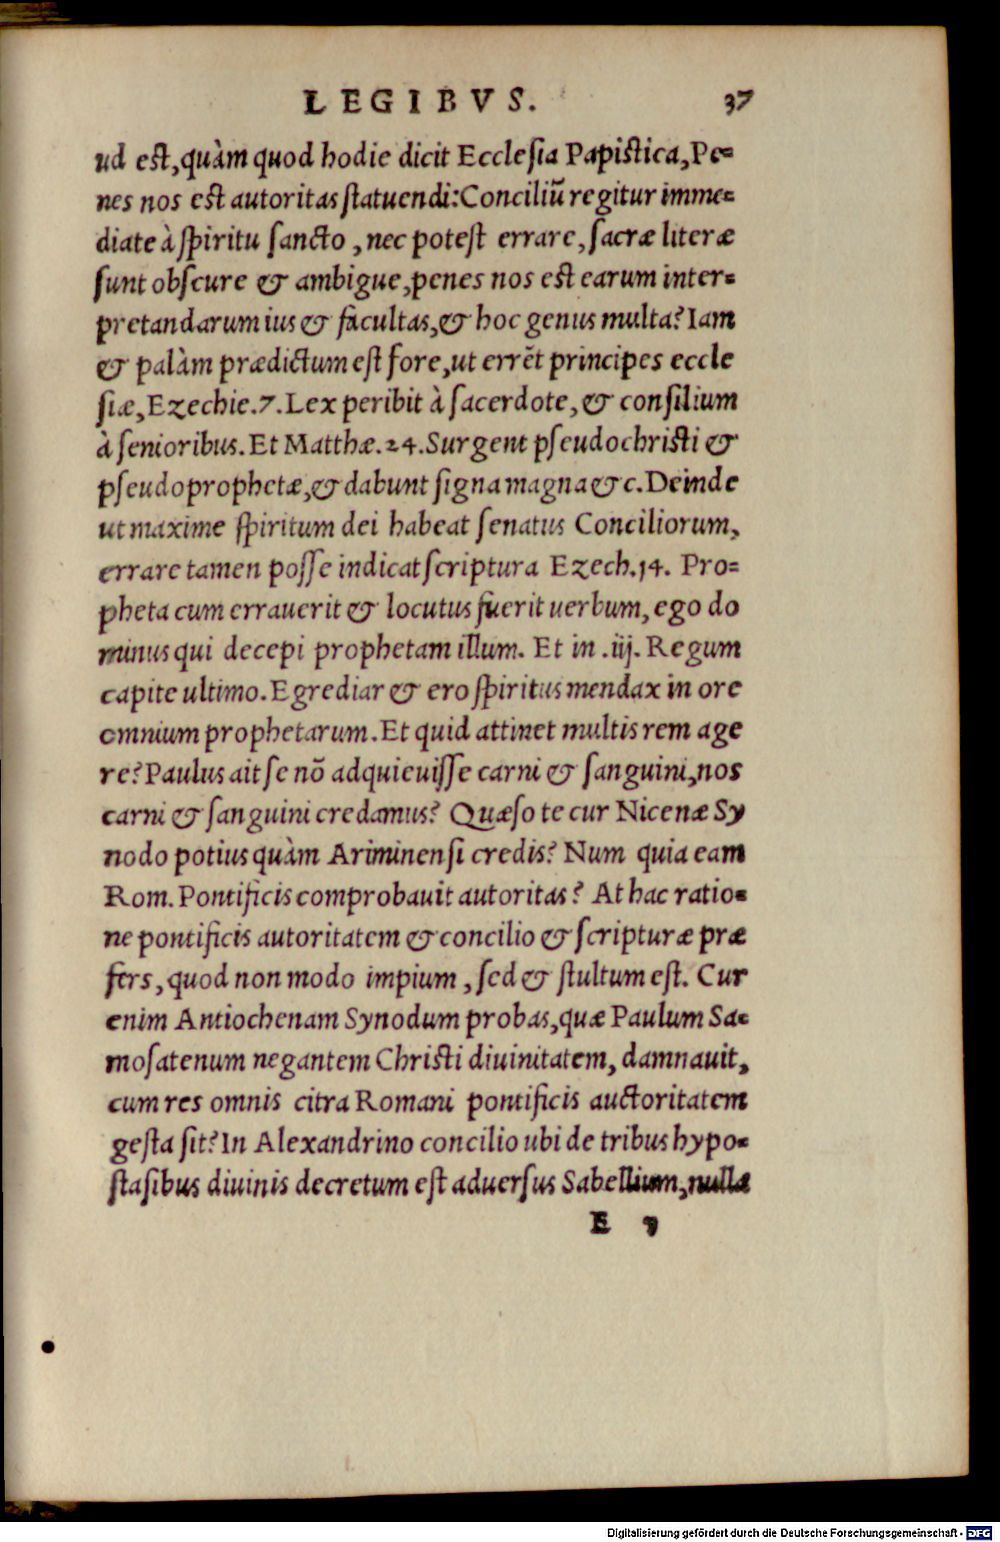 LEGIBVS. 37
ud est, quàm quod hodie dicit Ecclesia Papistica, Pe=
nes nos est autoritas statuendi: Conciliũ regitur imme=
diate à spiritu sancto, nec potest errare, sacræ literæ
sunt obscure & ambigue, penes nos est earum inter=
pretandarum ius & facultas, & hoc genus multa? Iam
& palàm prædictum est fore, ut errẽt principes eccle
siæ, Ezechie. 7. Lex peribit à sacerdote, & consilium
à senioribus. Et Matthæ. 24. Surgent pseudochristi &
pseudoprophetæ, & dabunt signa magna &c. Deinde
ut maxime spiritum dei habeat senatus Conciliorum,
errare tamen posse indicat scriptura Ezech. 14. Pro=
pheta cum errauerit & locutus fuerit uerbum, ego do
minus qui decepi prophetam illum. Et in .iij. Regum
capite ultimo. Egrediar & ero spiritus mendax in ore
omnium prophetarum. Et quid attinet multis rem age
re? Paulus ait se nõ adquieuisse carni & sanguini, nos
carni & sanguini credamus? Quæso te cur Nicenæ Sy
nodo potius quàm Ariminensi credis? Num quia eam
Rom. Pontificis comprobauit autoritas? At hac ratio=
ne pontificis autoritatem & concilio & scripturæ præ
fers, quod non modo impium, sed & stultum est. Cur
enim Antiochenam Synodum probas, quæ Paulum Sa=
mosatenum negantem Christi diuinitatem, damnauit,
cum res omnis citra Romani pontificis auctoritatem
gesta sit? In Alexandrino concilio ubi de tribus hypo=
stasibus diuinis decretum est aduersus Sabellium, nulla
E 5
Digitalisierung gefördert durch die Deutsche Forschungsgemeinschaft - DFG